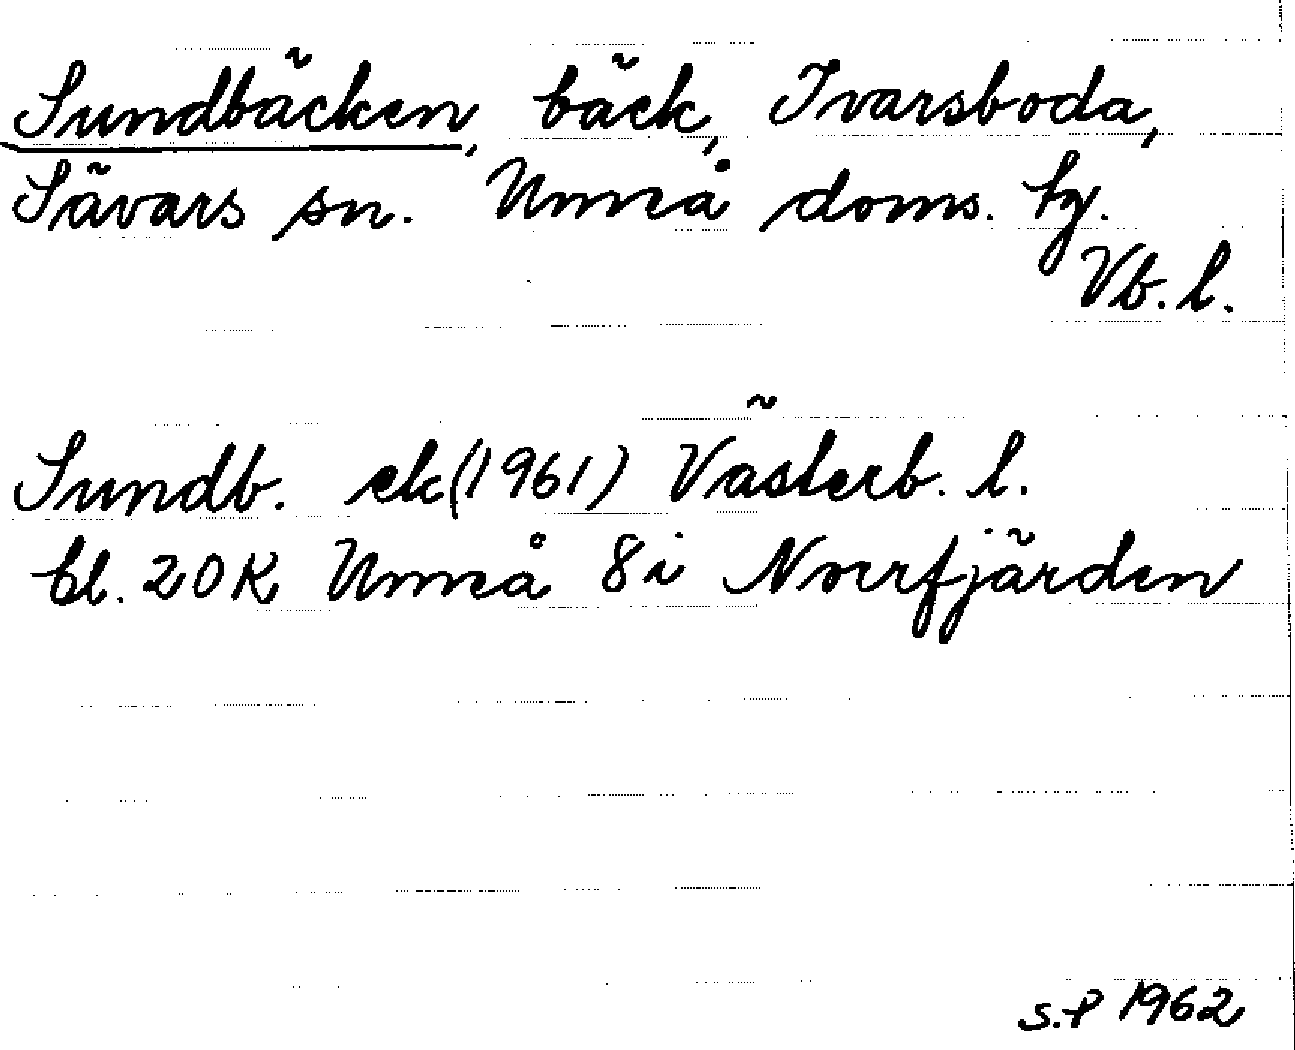 Sundbäcken, bäck, Ivarsboda,
Sävars sn. Umeå doms. hg.
Vb. l.
Sundb. ek (1961) Västerb. l.
bl. 20K Umeå 8i Norrfjärden
S.P 1962